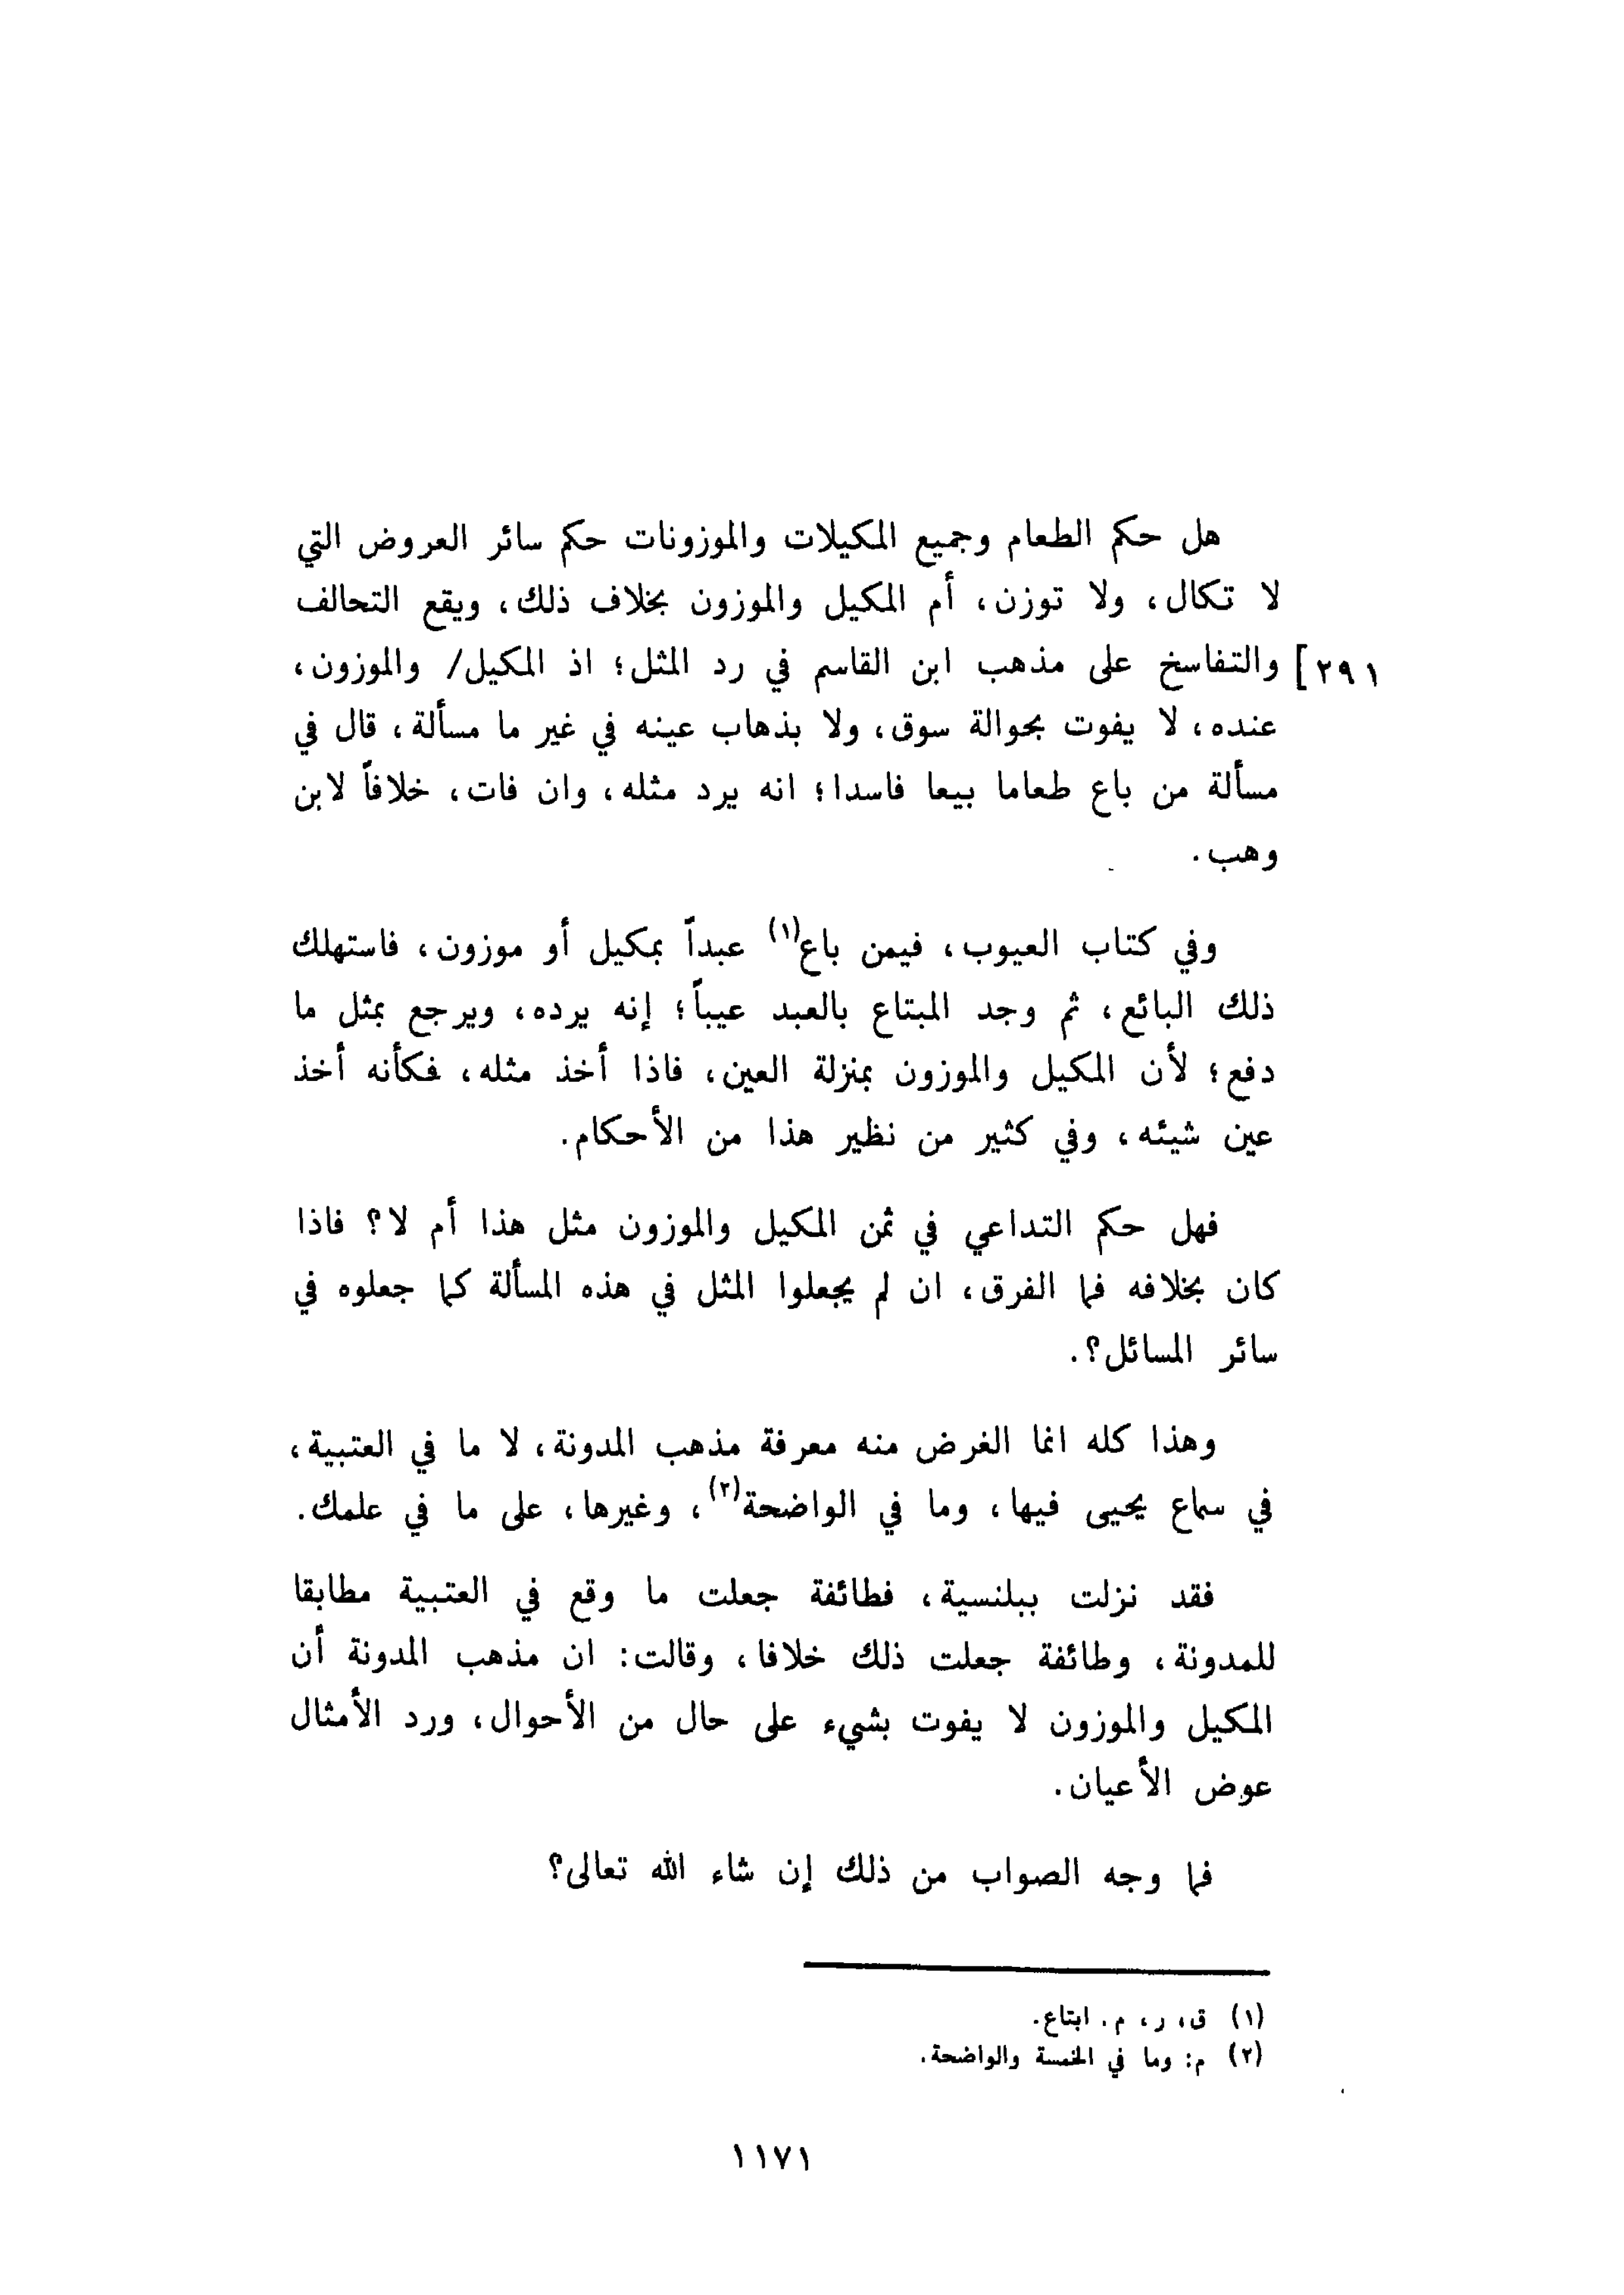 هل حكم الطعام وجميع المكيلات والموزونات حكم سائر العروض التي
لا تكال، ولا توزن، أم المكيل والموزون بخلاف ذلك، ويقع التحالف
٢٩١] والتفاسخ على مذهب ابن القاسم في رد المثل؛ اذ المكيل/ والموزون،
عنده، لا يفوت بحوالة سوق، ولا بذهاب عينه في غير ما مسألة، قال في
مسألة من باع طعاما بيعا فاسدا؛ انه يرد مثله، وان فات، خلافاً لابن
وهب.
وفي كتاب العيوب، فيمن باع(١) عبداً بمكيل أو موزون، فاستهلك
ذلك البائع، ثم وجد المبتاع بالعبد عيباً؛ إنه يرده، ويرجع بمثل ما
دفع؛ لأن المكيل والموزون بمنزلة العين، فاذا أخذ مثله، فكأنه أخذ
عين شيئه، وفي كثير من نظير هذا من الأحكام.
فهل حكم التداعي في ثمن المكيل والموزون مثل هذا أم لا؟ فاذا
كان بخلافه فما الفرق، ان لم يجعلوا المثل في هذه المسألة كما جعلوه في
سائر المسائل؟.
وهذا كله انما الغرض منه معرفة مذهب المدونة، لا ما في العتبية،
في سماع يحيى فيها، وما في الواضحة(٢)، وغيرها، على ما في علمك.
فقد نزلت ببلنسية، فطائفة جعلت ما وقع في العتبية مطابقا
للمدونة، وطائفة جعلت ذلك خلافا، وقالت: ان مذهب المدونة أن
المكيل والموزون لا يفوت بشيء على حال من الأحوال، ورد الأمثال
عوض الأعيان.
فما وجه الصواب من ذلك إن شاء الله تعالى؟
(١) ق، ر، م. ابتاع.
(٢) م: وما في الخمسة والواضحة.
١١٧١